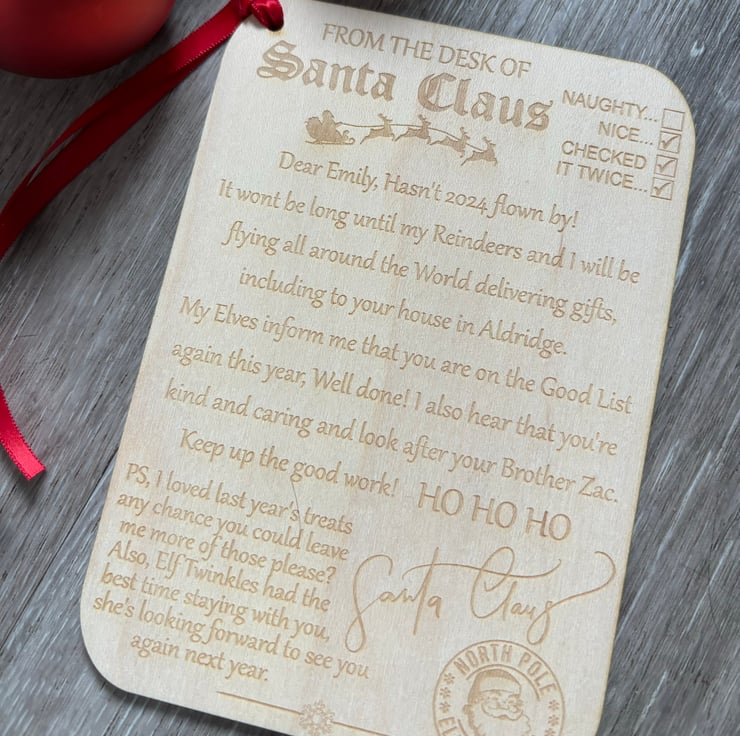 FROM THE DESK OF
Santa Claus
NAUGHTY...
NICE...
CHECKED
IT TWICE...
Dear Emily, Hasn't 2024 flown by!
It wont be long until my Reindeers and I will be
flying all around the World delivering gifts,
including to your house in Aldridge.
My Elves inform me that you are on the Good List
again this year, Well done! I also hear that you're
kind and caring and look after your Brother Zac.
Keep up the good work!
HO HO HO
PS, I loved last year's treats
any chance you could leave
me more of those please?
Also, Elf Twinkles had the
best time staying with you,
she's looking forward to see you
again next year.
Santa Claus
NORTH POLE